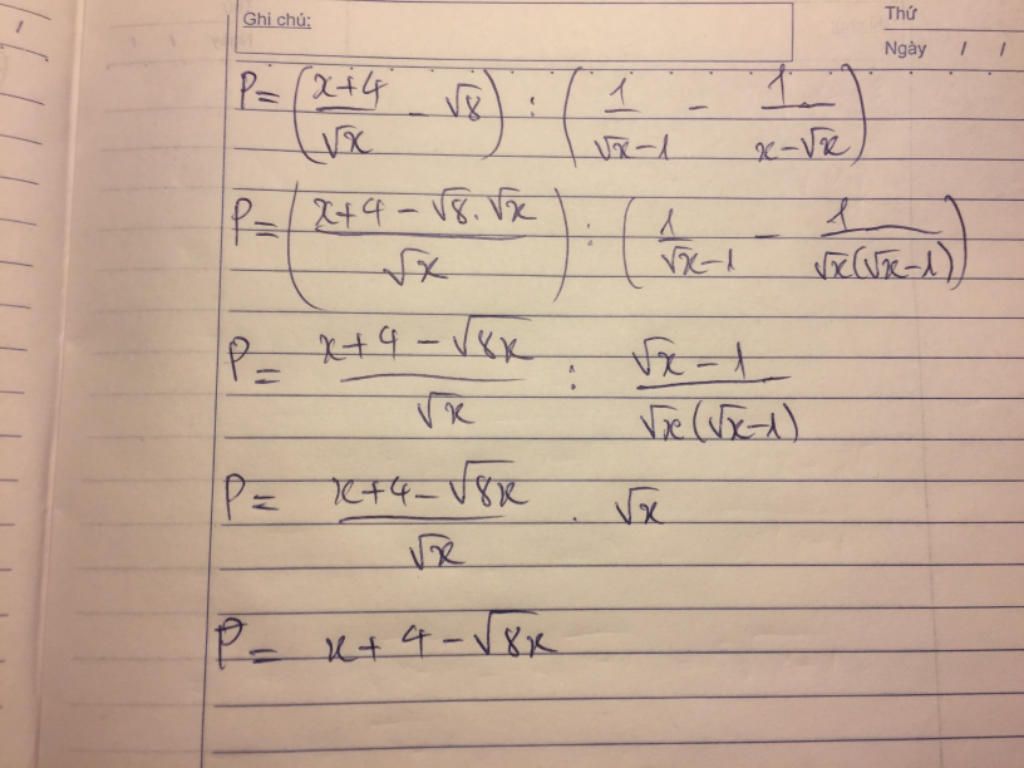 Ghi chú:
Thứ
Ngày / /
P = ( (x+4)/√x - √8 ) : ( 1/(√x-1) - 1/(x-√x) )
P = ( (x+4-√8.√x)/√x ) : ( 1/(√x-1) - 1/(√x(√x-1)) )
P = (x+4-√8x)/√x : (√x-1)/(√x(√x-1))
P = (x+4-√8x)/√x . √x
P = x+4-√8x